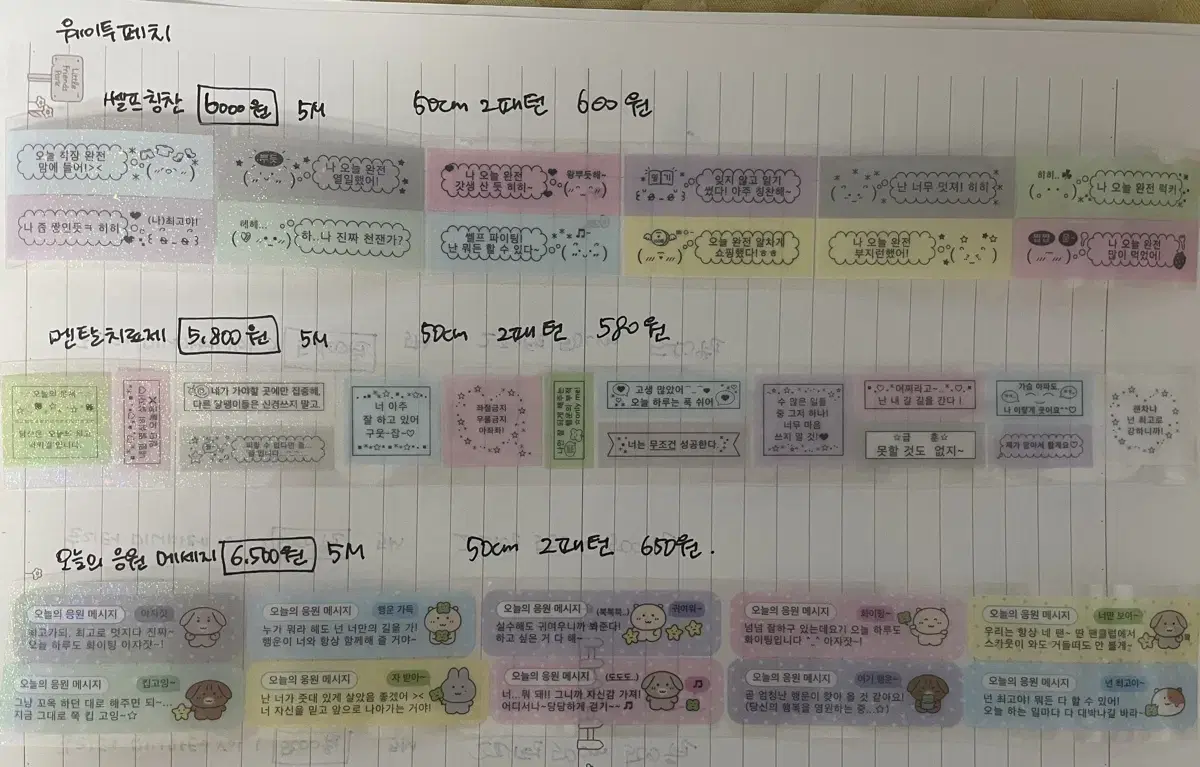 웨이투페치
Little
Friends
Park
셀프칭찬 6000원 5M 50cm 2패턴 600원
오늘 착장 완전
맘에 들어!><
뿌듯
나 오늘 완전
열일했어!
나 오늘 완전
갓생 산 듯 히히~
왕뿌듯해~
일기
잊지 않고 일기
썼다! 아주 칭찬해~
난 너무 멋져! 히히
히히..
나 오늘 완전 럭키!
나 쫌 짱인듯ㅋ 히히
(나)최고야!
헤헤...
하..나 진짜 천잰가?
셀프 파이팅
난 뭐든 할 수 있다~
오늘 완전 알차게
쇼핑했다!ㅎㅎ
나 오늘 완전
부지런했어!
냠냠
나 오늘 완전
많이 먹었어!
멘탈치료제 5,800원 5M 50cm 2패턴 580원
오늘의 운세
당신은 오늘도 최고
내가 가야할 곳에만 집중해,
다른 달팽이들은 신경쓰지 말고.
피할 수 없다면
너 아주
잘 하고 있어
구웃-잡~♡
좌절금지
우울금지
아좌좌!
행운의 부적
☆only me!
고생 많았어
오늘 하루는 푹 쉬어
너는 무조건 성공한다.
수 많은 일들
중 그저 하나!
너무 마음
쓰지 말 것!♥
어쩌라고~
난 내 갈 길을 간다!
☆급 훈☆
못할 것도 없지~
가슴 아파도
나 이렇게 웃어요~♡
제가 알아서 할게요♡
괜차나
넌 최고로
강하니까!
오늘의 응원 메세지 6,500원 5M 50cm 2패턴 650원.
오늘의 응원 메시지 아자잣
최고가되, 최고로 멋지다 진짜~
오늘 하루도 화이팅 아자잣~!
오늘의 응원 메시지 행운 가득
누가 뭐라 해도 넌 너만의 길을 가!
행운이 너와 항상 함께해 줄 거야~
오늘의 응원 메시지 (뽁뽁뽁..) 귀여워~
실수해도 귀여우니까 봐준다!
하고 싶은 거 다 해~
오늘의 응원 메시지 화이팅~
넘넘 잘하구 있는데요기 오늘 하루도
화이팅입니다 ^_^ 아자잣~!
오늘의 응원 메시지 너만 보여~
우리는 항상 네 팬~ 딴 팬클럽에서
스카웃이 와도 거들떠도 안 볼게~
오늘의 응원 메시지 킵고잉~
그냥 꼬옥 하던 대로 해주면 되~...
지금 그대로 쭉 킵 고잉~☆
오늘의 응원 메시지 자 받아~
난 너가 줏대 있게 살았음 좋겠어 ><
너 자신을 믿고 앞으로 나아가는 거야!
오늘의 응원 메시지 (도도도..)
너.. 뭐 돼!! 그니까 자신감 가져!
어디서나~당당하게 걷기~♬
오늘의 응원 메시지 여기 행운~
곧 엄청난 행운이 찾아 올 것 같아요!
(당신의 행복을 염원하는 중..☆)
오늘의 응원 메시지 넌 최고야~
넌 최고야! 뭐든 다 할 수 있어!
오늘 하는 일마다 다 대박나길 바라~